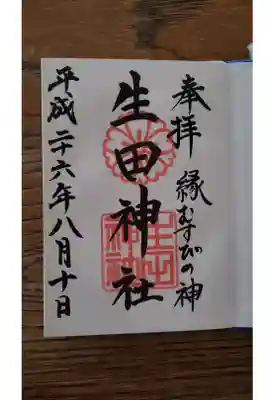 奉拝 縁むすびの神
生田神社
平成二十六年八月十日
生田神社